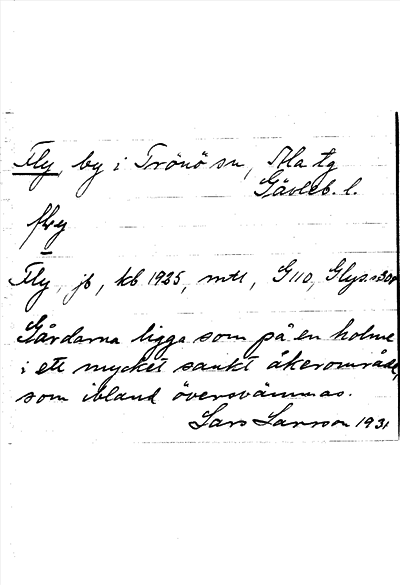 Fly, by i Trönö sn, Ala tg
Gävleb. l.
fly
Fly, jb, kb 1925, mtl, G 110, Glys. s 308
Gårdarna ligga som på en holme
i ett mycket sankt åkerområde,
som ibland översvämmas.
Lars Larsson 1931